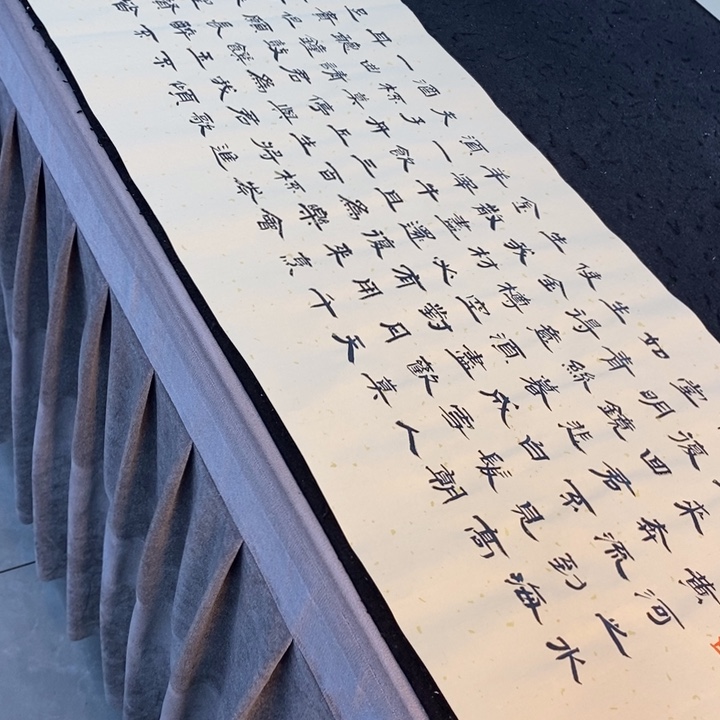 黄河之水
來奔流到海
復回君不見高
堂明鏡悲白髮朝
如青絲暮成雪人
生得意須盡歡莫
使金樽空對月天
生我材必有用千
金散盡還復來烹
羊宰牛且為樂會
須一飲三百杯岑
夫子丹丘生將進
酒杯莫停與君歌
一曲請君為我傾
耳聽鐘鼓饌玉不
足貴但願長醉不